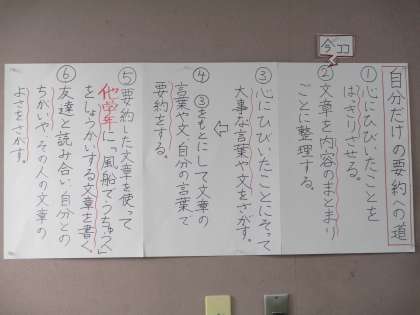 今ココ
自分だけの要約への道
①心にひびいたことを
はっきりさせる。
②文章を内容のまとまり
ごとに整理する。
③心にひびいたことにそって
大事な言葉や文をさがす。
④③をもとにして文章の
言葉や文、自分の言葉で
要約をする。
⑤要約した文章を使って
他学年に「風船でうちゅうへ」
をしょうかいする文章を書く。
⑥友達と読み合い自分との
ちがいや、その人の文章の
よさをさがす。